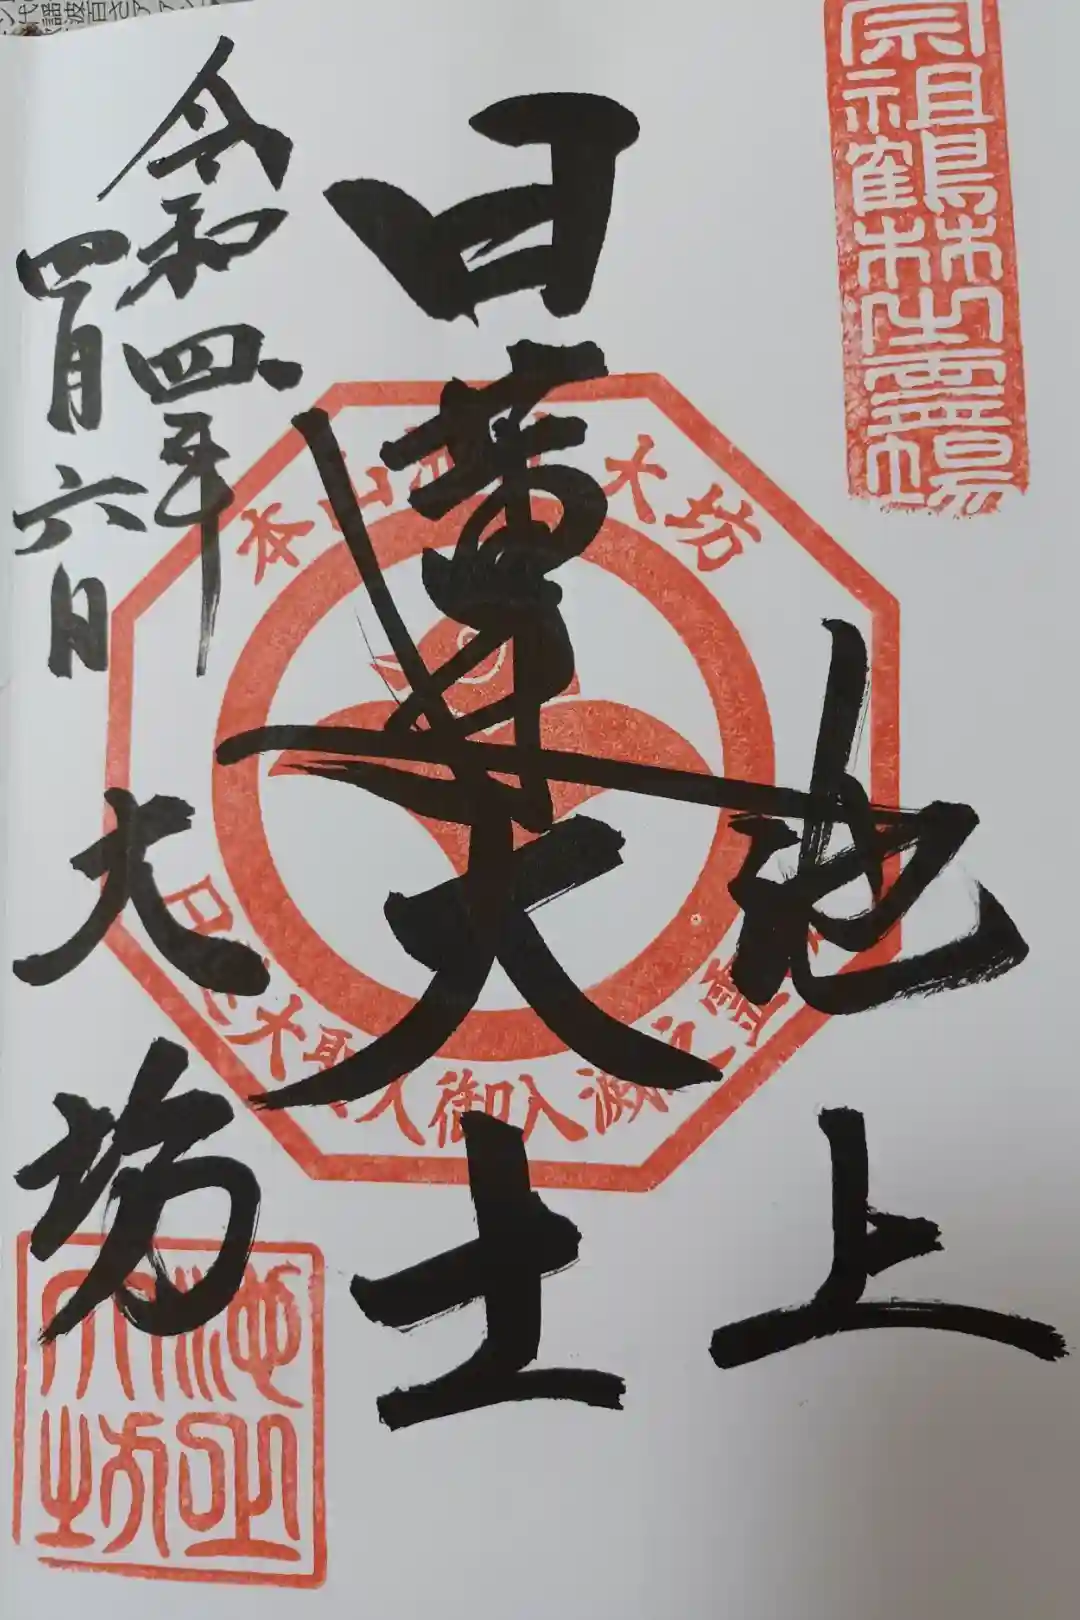 宗祖鶴林之靈場
池上
日蓮大士
令和四年
四月六日
大坊
本山 大坊
日蓮大聖人御入滅之霊
池上大坊